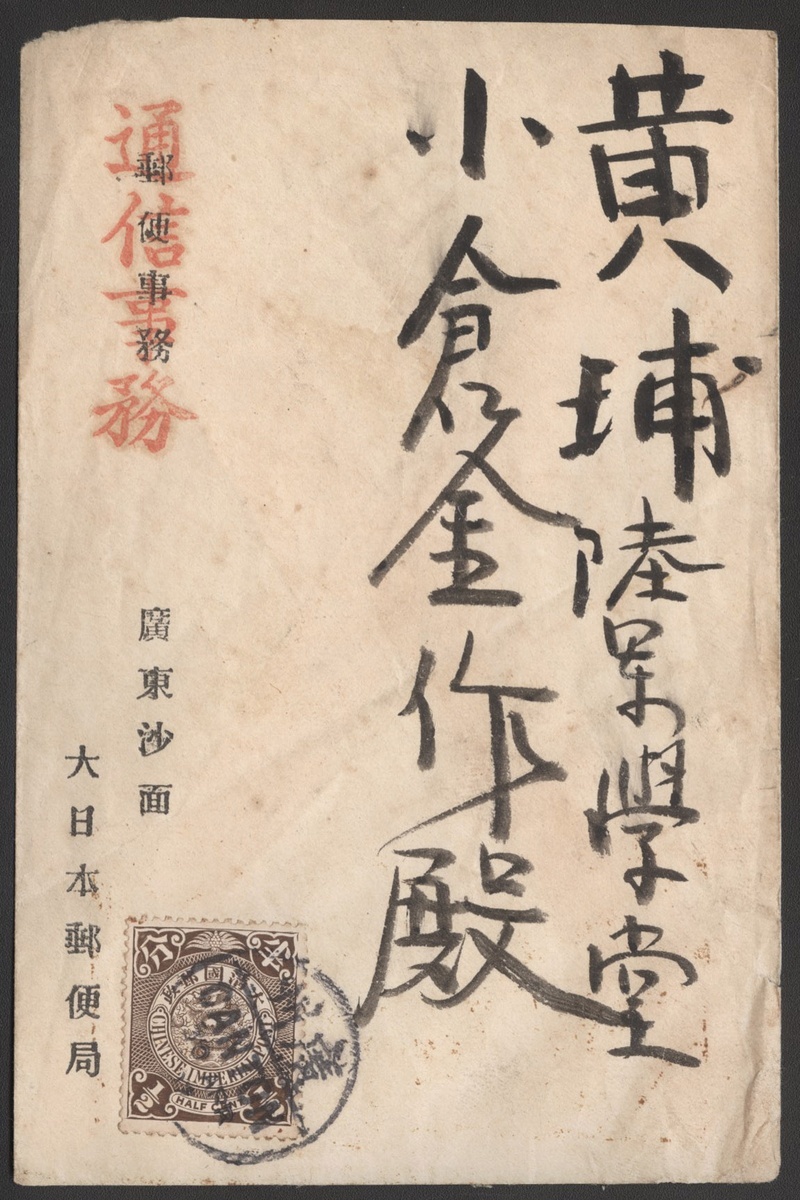 黃埔陸軍學堂
小倉金作殿
通信事務
郵便事務
廣東沙面
大日本郵便局
半分
大清國郵政
CHINESE IMPERIAL POST
½
HALF CENT
CANTON